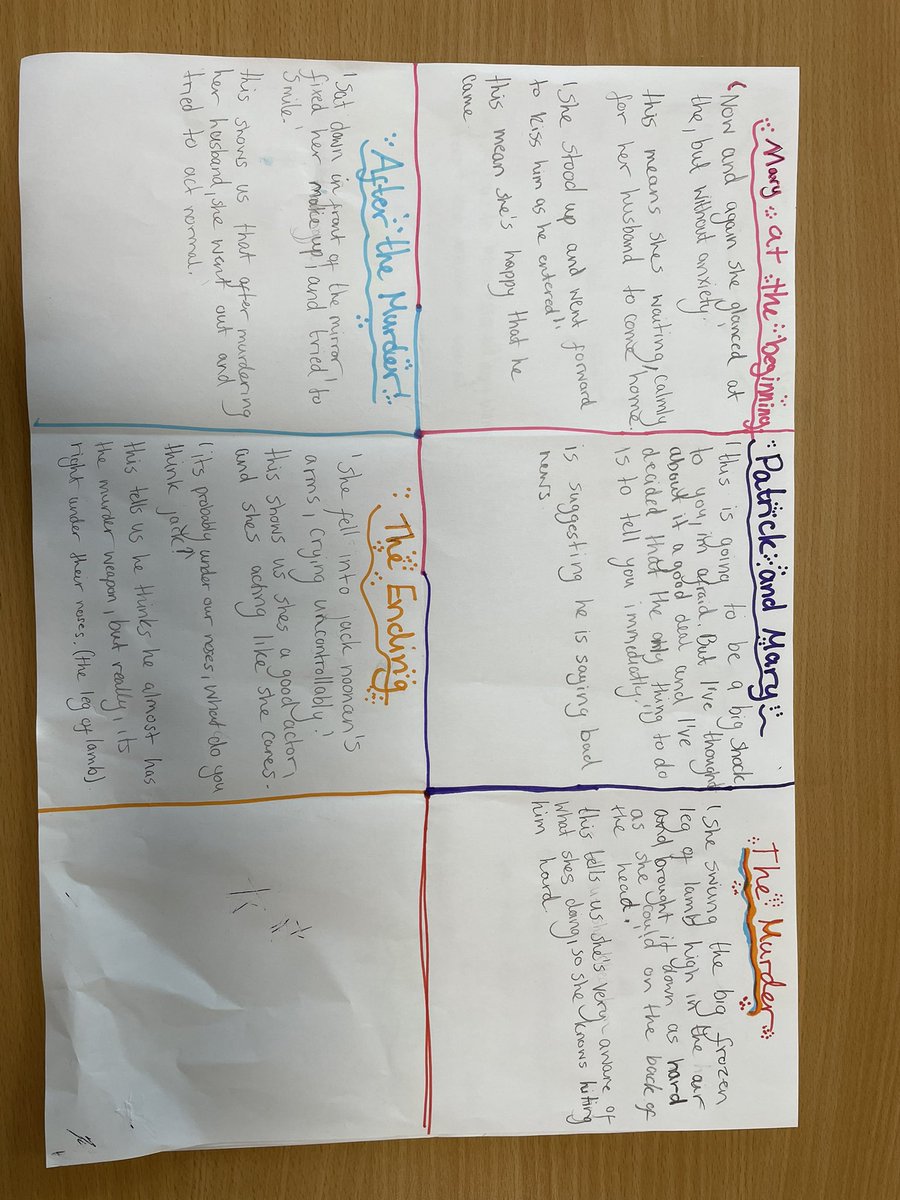 Mary at the beginning
'Now and again she glanced at
the, but without anxiety.'
this means shes waiting calmly
for her husband to come home
'She stood up and went forward
to kiss him as he entered'
this mean she's happy that he
came
Patrick and Mary
'this is going to be a big shock
to you, im afraid. But I've thought
about it a good deal and I've
decided that the only thing to do
is to tell you immediatly.'
is suggesting he is saying bad
news
The Murder
'She swung the big frozen
leg of lamb high in the air
and brought it down as hard
as she could on the back of
the head.'
this tells us she's very aware of
what shes doing, so she knows hitting
him hard
After the Murder
'Sat down in front of the mirror
fixed her makeup, and tried to
smile.'
this shows us that after murdering
her husband she went out and
tried to act normal.
The Ending
'She fell into jack noonan's
arms, crying uncontrollably.'
this shows us shes a good actor
and shes acting like she cares.
'its probably under our noses, what do you
think jack?'
this tells us he thinks he almost has
the murder weapon, but really, its
right under their noses. (the leg of lamb)